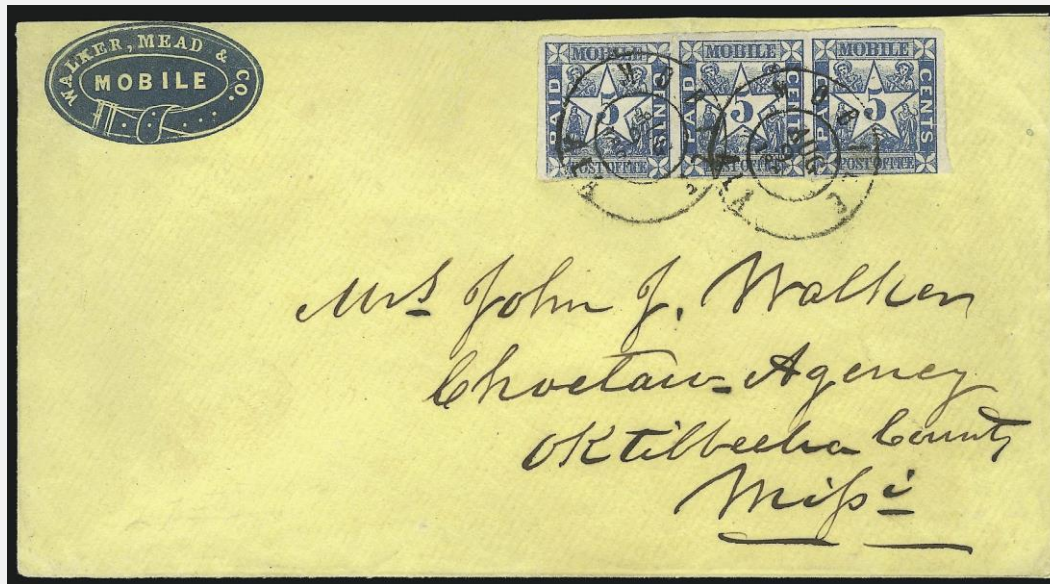 WALKER, MEAD & CO.
MOBILE
MOBILE
PAID 5 CENTS
POST OFFICE
MOBILE
PAID 5 CENTS
POST OFFICE
MOBILE
PAID 5 CENTS
POST OFFICE
MOBILE ALA
AUG
MOBILE ALA
AUG
Mrs John J. Walker
Choctaw-Agency
OKtibbeeha County
Missi